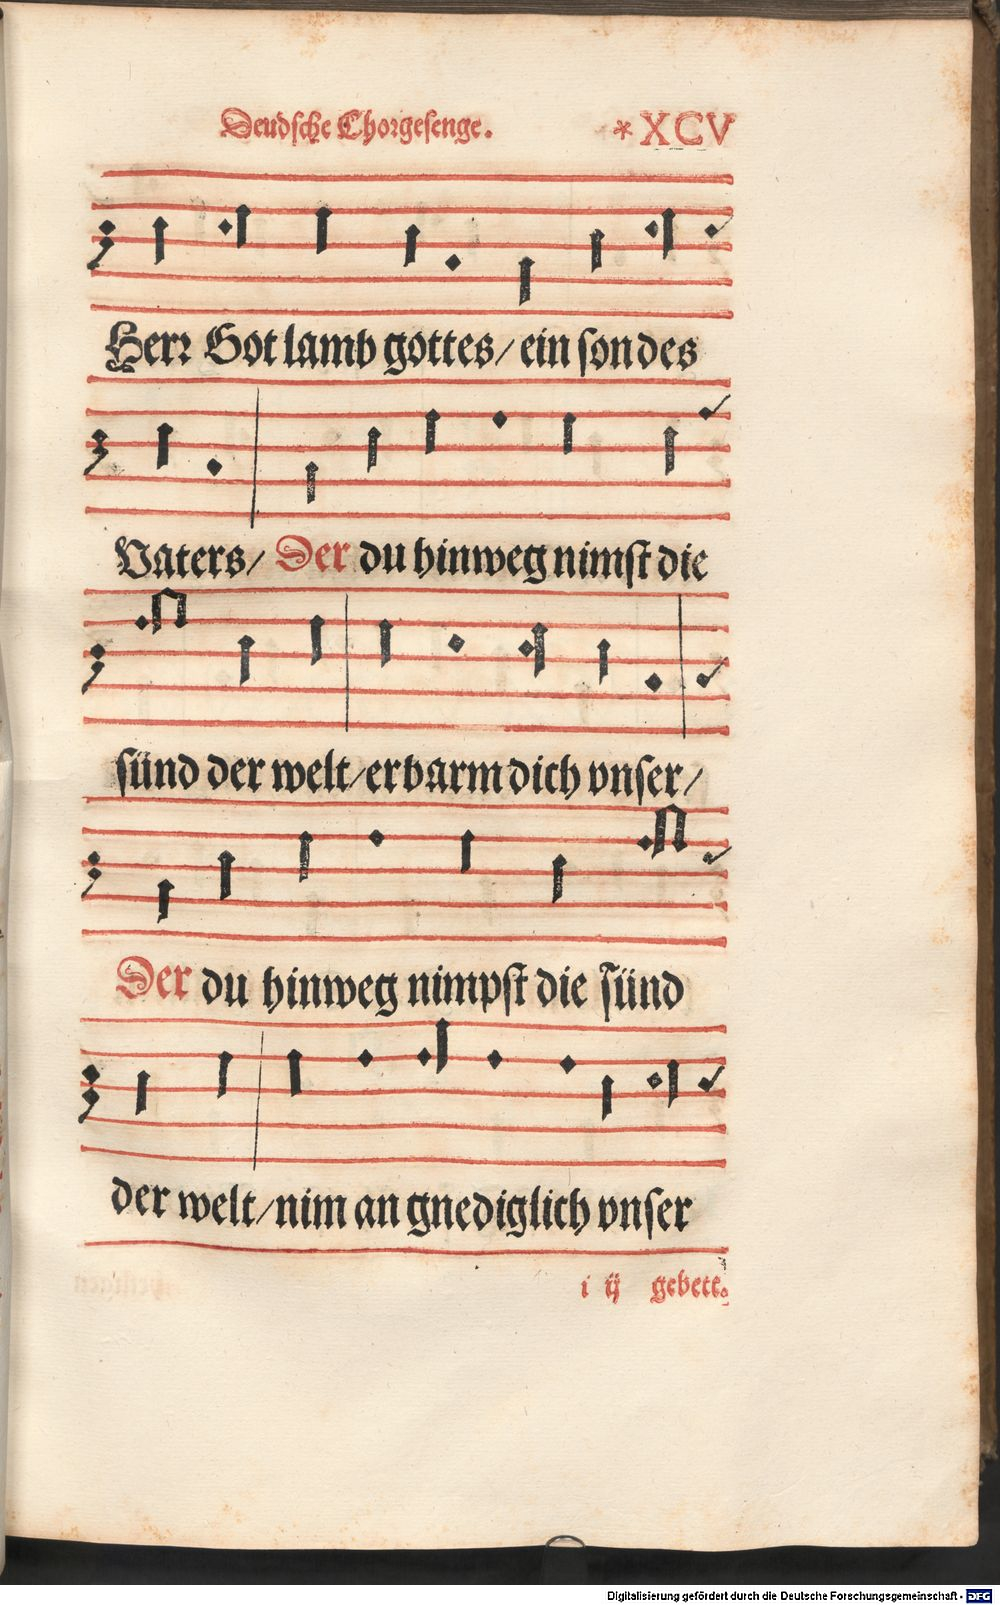 Deudsche Chorgesenge. *XCV
Herr Got lamb gottes/ ein son des
Vaters/ Der du hinweg nimst die
sünd der welt/ erbarm dich vnser/
Der du hinweg nimpst die sünd
der welt/ nim an gnediglich vnser
i ij gebete.
Digitalisierung gefördert durch die Deutsche Forschungsgemeinschaft - DFG